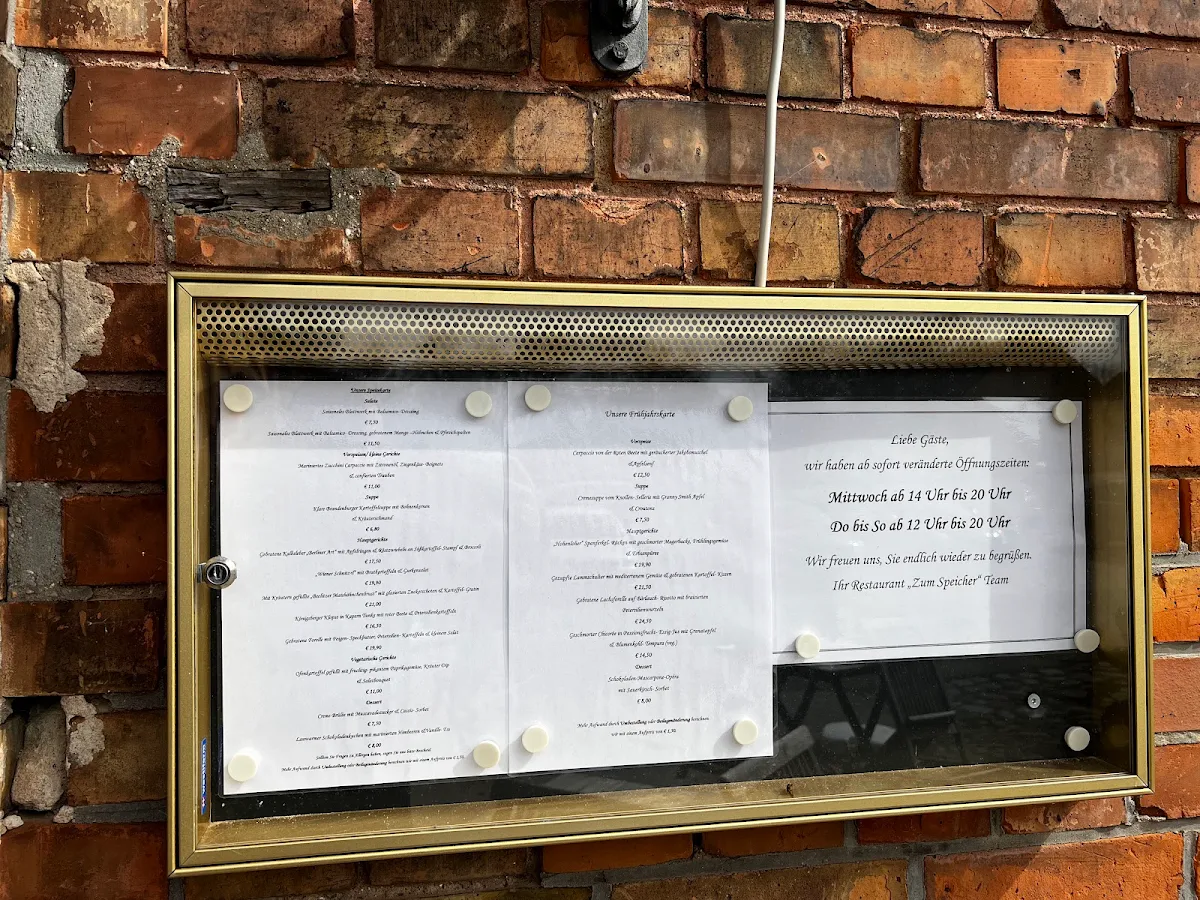 Unsere Speisekarte
Salate
Saisonales Blattwerk mit Balsamico- Dressing
€ 7,50
Saisonales Blattwerk mit Balsamico- Dressing, gebratenem Mango -Hühnchen & Pfirsichspalten
€ 13,50
Vorspeisen/ kleine Gerichte
Mariniertes Zucchini Carpaccio mit Zitronenöl, Ziegenkäse- Beignets
& confierten Trauben
€ 11,00
Suppe
Klare Brandenburger Kartoffelsuppe mit Bohnenkernen
& Kräuterschmand
€ 6,80
Hauptgerichte
Gebratene Kalbsleber „Berliner Art" mit Apfelringen & Röstzwiebeln an Süßkartoffel- Stampf & Broccoli
€ 17,50
„Wiener Schnitzel" mit Bratkartoffeln & Gurkensalat
€ 19,90
Mit Kräutern gefüllte „Beelitzer Maishähnchenbrust" mit glasierten Zuckerschoten & Kartoffel- Gratin
€ 21,00
Königsberger Klopse in Kapern Tunke mit roter Beete & Petersilienkartoffeln
€ 16,50
Gebratene Forelle mit Feigen- Speckbutter, Petersilien- Kartoffeln & kleinem Salat
€ 19,90
Vegetarische Gerichte
Ofenkartoffel gefüllt mit fruchtig- pikantem Paprikagemüse, Kräuter Dip
& Salatbouquet
€ 11,00
Dessert
Creme Brûlée mit Muscovadozucker & Cassis- Sorbet
€ 7,50
Lauwarmer Schokoladenkuchen mit marinierten Himbeeren & Vanille- Eis
€ 8,00
Sollten Sie Fragen zu Allergien haben, sagen Sie uns bitte Bescheid.
Mehr Aufwand durch Umbestellung oder Beilagen berechnen wir mit einem Aufpreis von € 1,50.
Unsere Frühjahrskarte
Vorspeise
Carpaccio von der Roten Beete mit geräucherter Jakobsmuschel
& Apfelsenf
€ 12,50
Suppe
Cremesuppe vom Knollen- Sellerie mit Granny Smith Apfel
& Croutons
€ 7,50
Hauptgerichte
„Hohenloher" Spanferkel- Rücken mit geschmorter Magerbacke, Frühlingsgemüse
& Erbsenpüree
€ 19,90
Gezupfte Lammschulter mit mediterranem Gemüse & gebratenen Kartoffel- Kissen
€ 21,50
Gebratene Lachsforelle auf Bärlauch- Risotto mit frittierten
Petersilienwurzeln
€ 24,50
Geschmorter Chicorée in Passionsfrucht- Essig- Jus mit Granatapfel
& Blumenkohl- Tempura (veg.)
€ 14,50
Dessert
Schokoladen-Mascarpone-Opéra
mit Sauerkirsch- Sorbet
€ 8,00
Mehr Aufwand durch Umbestellung oder Beilagenänderung berechnen
wir mit einem Aufpreis von € 1,50.
Liebe Gäste,
wir haben ab sofort veränderte Öffnungszeiten:
Mittwoch ab 14 Uhr bis 20 Uhr
Do bis So ab 12 Uhr bis 20 Uhr
Wir freuen uns, Sie endlich wieder zu begrüßen.
Ihr Restaurant „Zum Speicher" Team